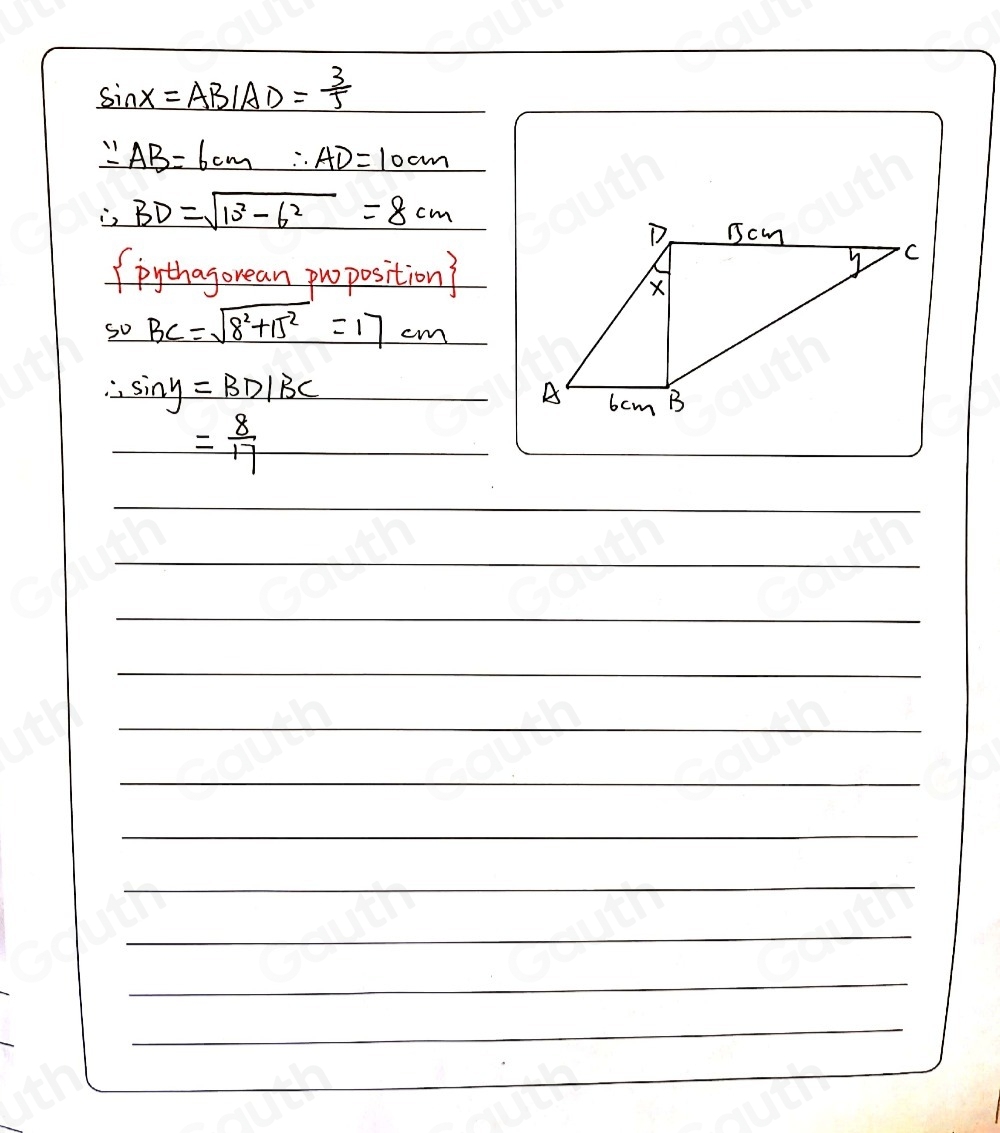 sinx = AB/AD = 3/5
∵ AB = 6cm ∴ AD = 10cm
∴ BD = √10² - 6² = 8 cm
{pythagorean proposition}
so BC = √8² + 15² = 17 cm
∴ sin y = BD/BC
= 8/17
D 15cm C
x y
A 6cm B
Gauth